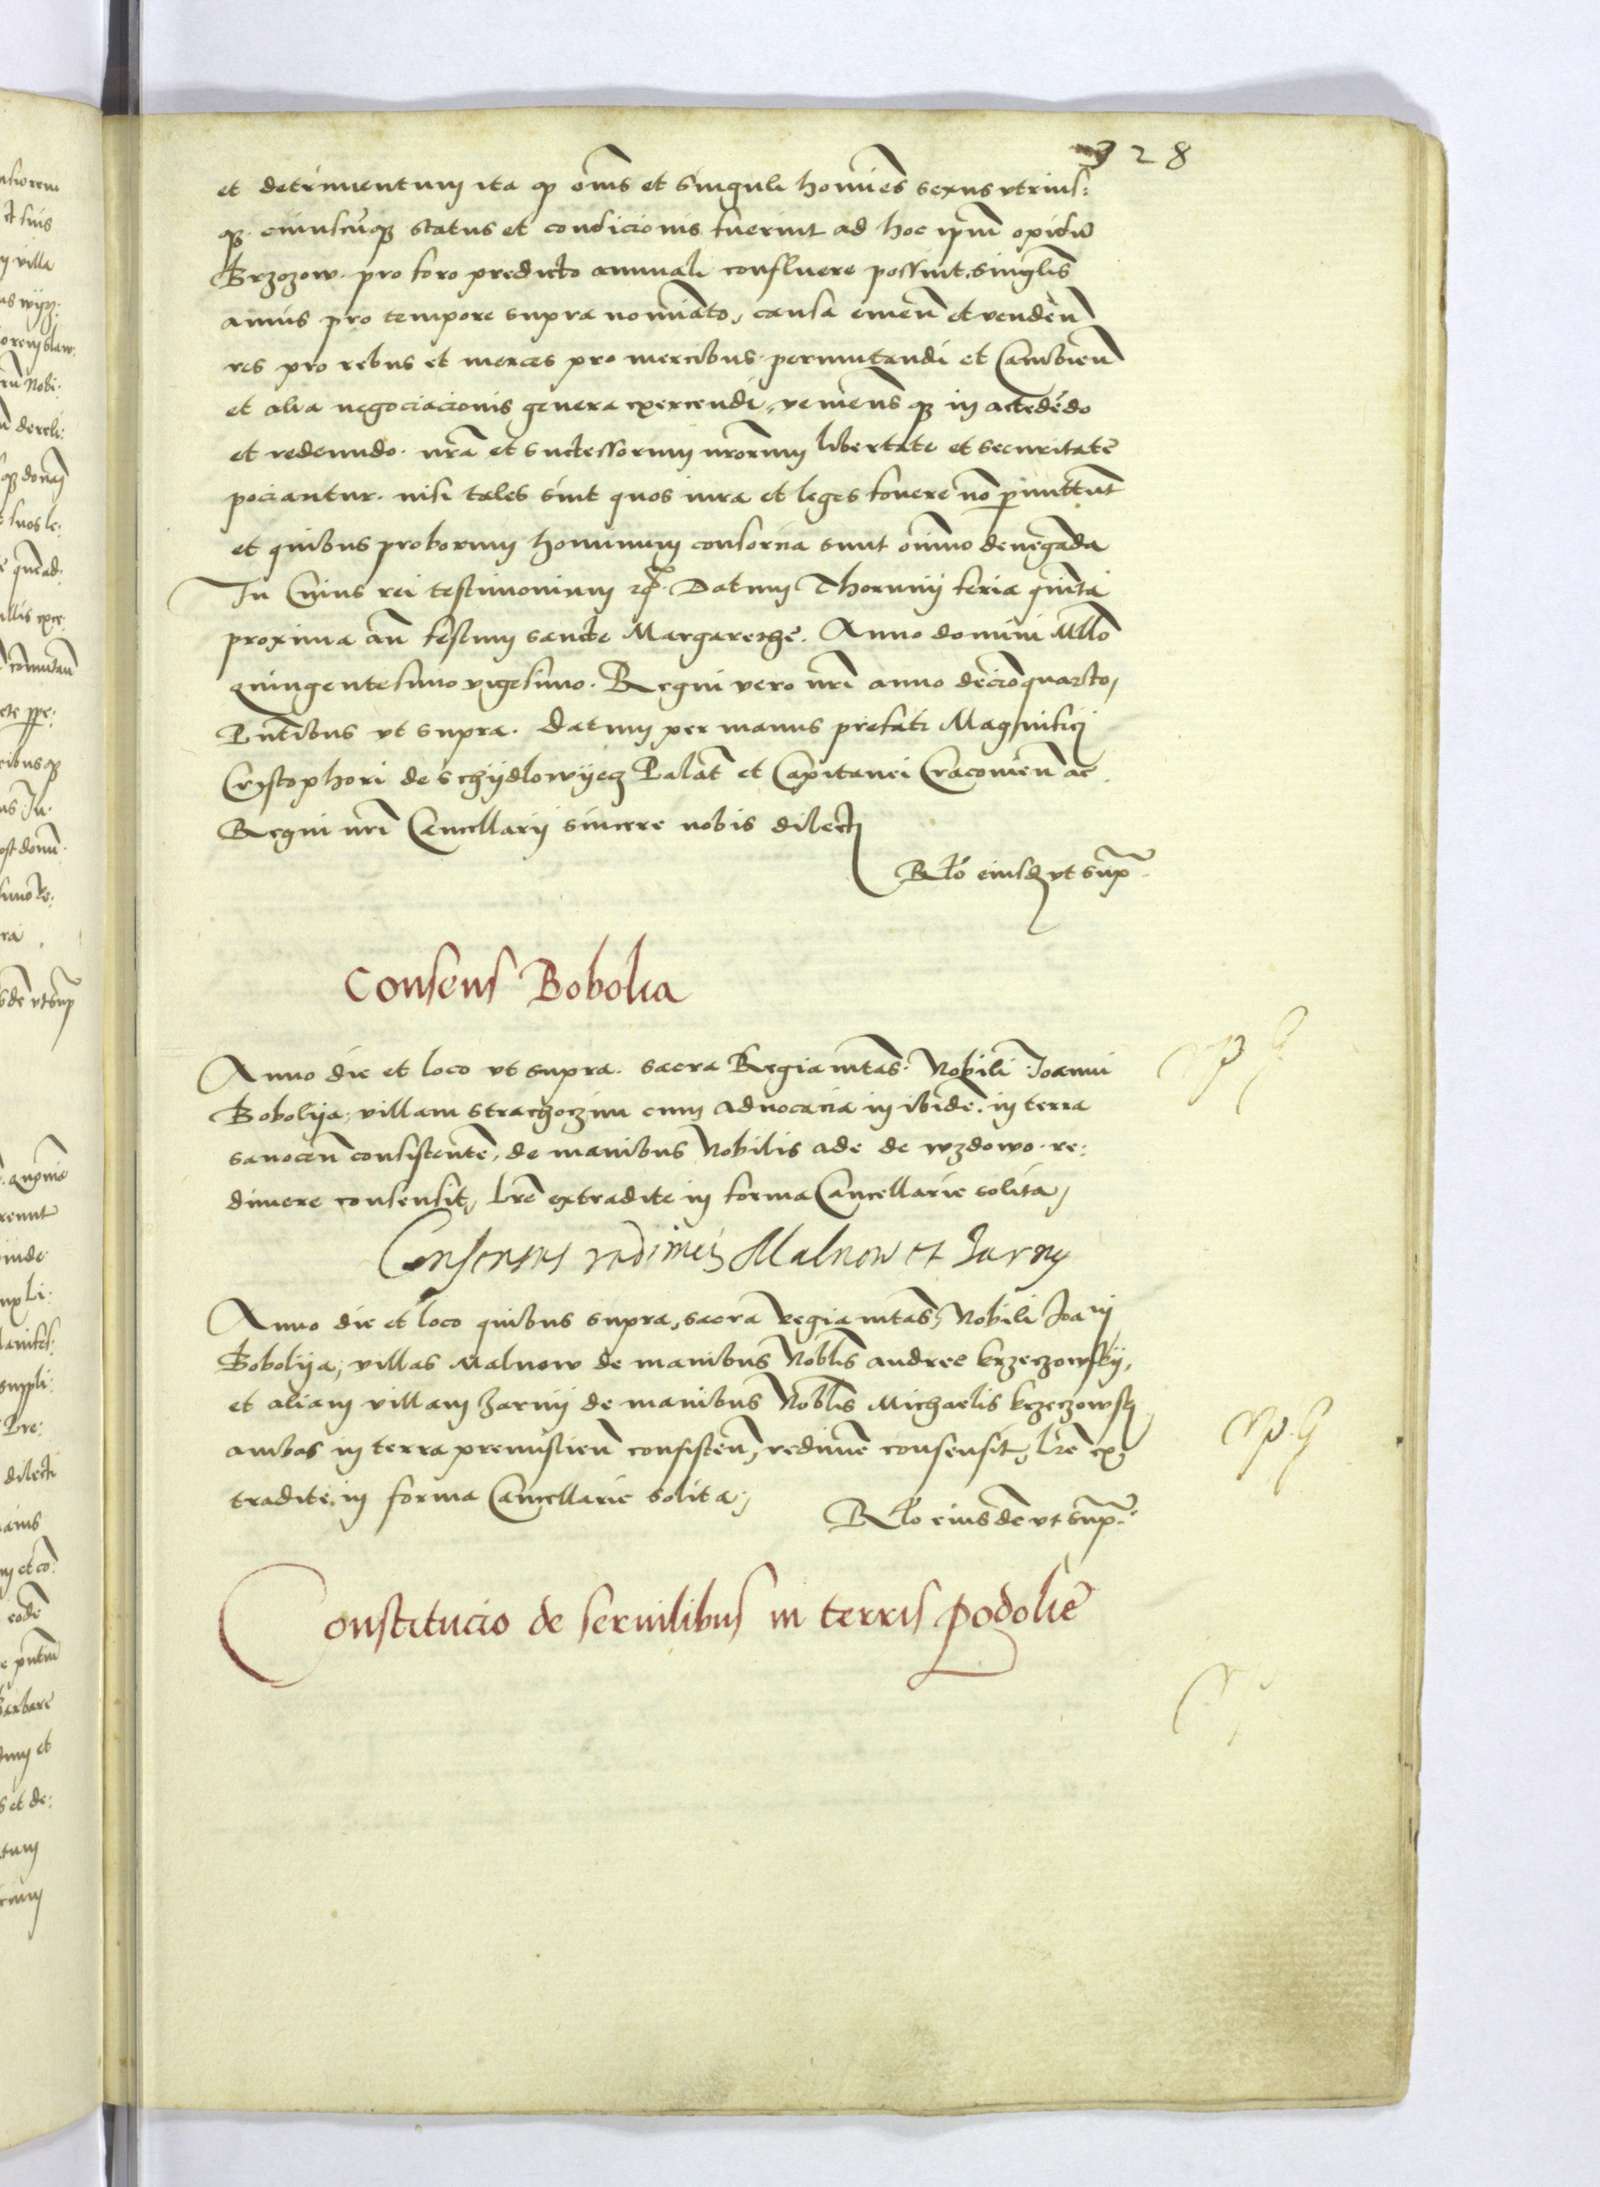 328
et detrimentum ita q̄ om̄s et singuli homines sexus vtrius:
q̨ cuiuscūq̨ status et condicionis fuerint ad hoc ip̄m opidū
Brzozow pro foro predicto annuali confluere possint, singlis̄
annis pro tempore supra nominato, causa emen̄ et venden̄
res pro rebus et merces pro mercibus permutandi et Cambien̄
et alia negociacionis genera exercendi, veniens q̨ in accedēdo
et redeundo nr̄a et successorum nr̄orum libertate et securitate
pociantur. nisi tales sint quos iura et leges fouere nō permittunt
et quibus proborum hominum consorcia sunt omnino denegāda
In Cuius rei testimonium Datum Thorunij feria quinta
proxima an̄ festum sancte Margarethe. Anno domini Mllō
quingentesimo vigesimo. Regni vero nr̄i anno decimoquarto,
Pn̄tibus vt supra. datum per manus prefati Magnifici
Crystophori de Schydlowyecz Palat̄ et Capitanei Cracouien̄ ac
Regni nr̄i Cancellarij sincere nobis dilecti
Rłō eiusd vt supr̄
Consens Bobolia
Anno die et loco vt supra. sacra Regia mtas̄. Nobili Joanni
Bobolija, villam Straczoczinu cum aduocacia in ibidē. in terra
sanocen̄ consistentē, de manibus Nobilis ade de wzdowo re:
dimere consensit, lr̄e extradite in forma Cancellarie solita,
Consensus redimēs Malnow et Zarny
Anno die et loco quibus supra, sacra regia mtas̄, Nobili Joan̄i
Bobolija, villas Malnow de manibus Noblis̄ andree krzeczowskij,
et aliam villam Zarnij de manibus Noblis̄ Michaelis krzeczowskj
ambas in terra premislien̄ consisten̄, redimē consensit, lr̄e ex
tradite in forma Cancellarie solita,
Rłō eiusdē vt supr̄
Constitucio de seruilibus in terris podoliē